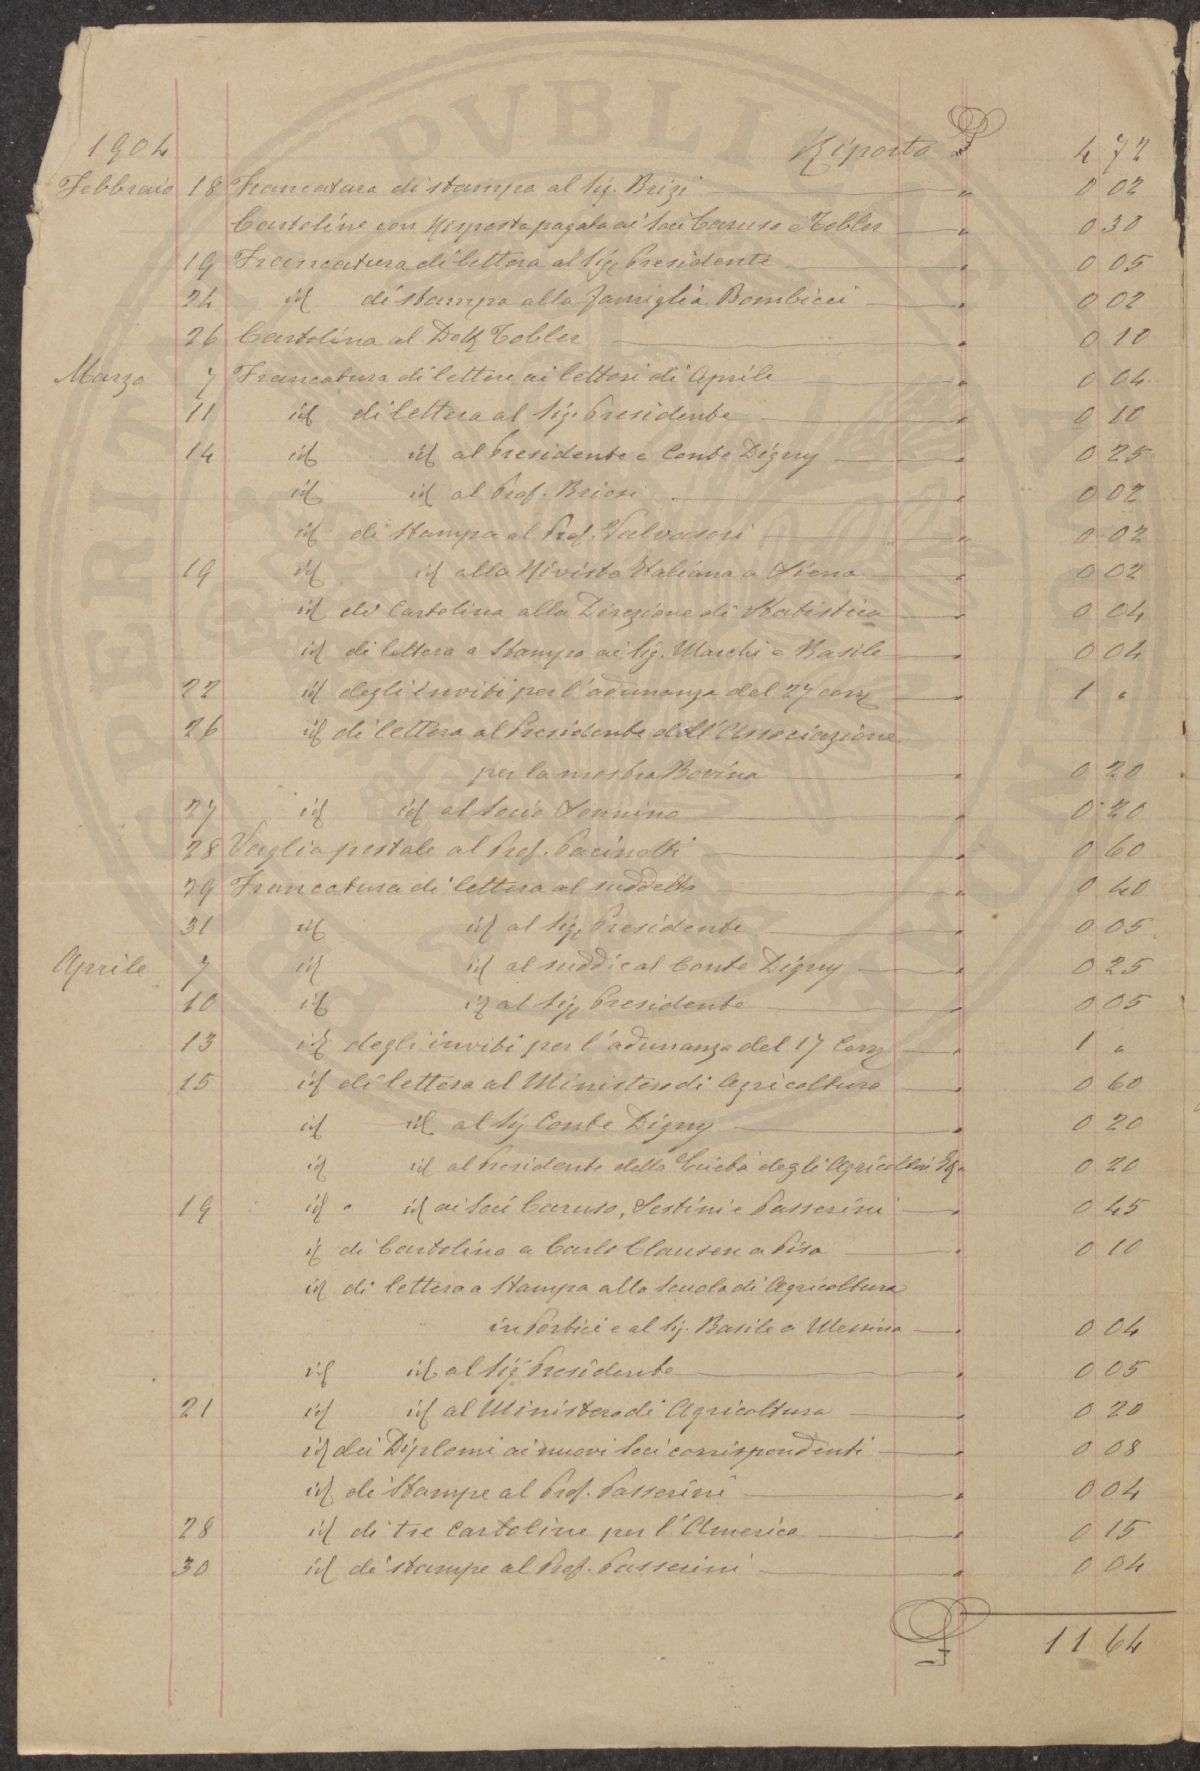 PUBLI
1904 Riporto £ 4 72
Febbraio 18 Francatura di stampa al Sig. Brizi " 0 02
Cartoline con risposta pagata ai Soci Caruso e Tobler " 0 30
19 Francatura di lettera al Sig. Presidente " 0 05
24 id di stampa alla famiglia Bombicci " 0 02
26 Cartolina al Dott Tobler " 0 10
Marzo 7 Francatura di lettere ai lettori di Aprile " 0 04
11 id di lettera al Sig. Presidente " 0 10
14 id id al Presidente e Conte Digny " 0 25
id id al Prof. Briosi " 0 02
id di stampa al Prof. Valvasori " 0 02
19 id id alla Rivista Italiana a Siena " 0 02
id di Cartolina alla Direzione di Statistica " 0 04
id di lettera e stampa ai Sig. Marchi e Basile " 0 04
22 id degli inviti per l'adunanza del 27 corr " 1 "
26 id di lettera al Presidente dell'Associazione
per la mostra Bovina " 0 20
27 id id al Socio Sonnino " 0 20
28 Vaglia postale al Prof. Pacinotti " 0 60
29 Francatura di lettera al suddetto " 0 40
31 id id al Sig. Presidente " 0 05
Aprile 7 id id al sudd. e al Conte Digny " 0 25
10 id id al Sig. Presidente " 0 05
13 id degli inviti per l'adunanza del 17 Corr " 1 "
15 id di lettera al Ministero di Agricoltura " 0 60
id id al Sig Conte Digny " 0 20
id id al Presidente della Società degli Agricoltori " 0 20
19 id " id ai Soci Caruso, Sestini e Passerini " 0 45
id di Cartolina a Carlo Clausen a Pisa " 0 10
id di lettera e stampa alla Scuola di Agricoltura
in Portici e al Sig. Basile a Messina " 0 04
id id al Sig Presidente " 0 05
21 id id al Ministero di Agricoltura " 0 20
id dei Diplomi ai nuovi Soci corrispondenti " 0 08
id di Stampe al Prof. Passerini " 0 04
28 id di tre Cartoline per l'America " 0 15
30 id di stampe al Prof. Passerini " 0 04
£ 11 64